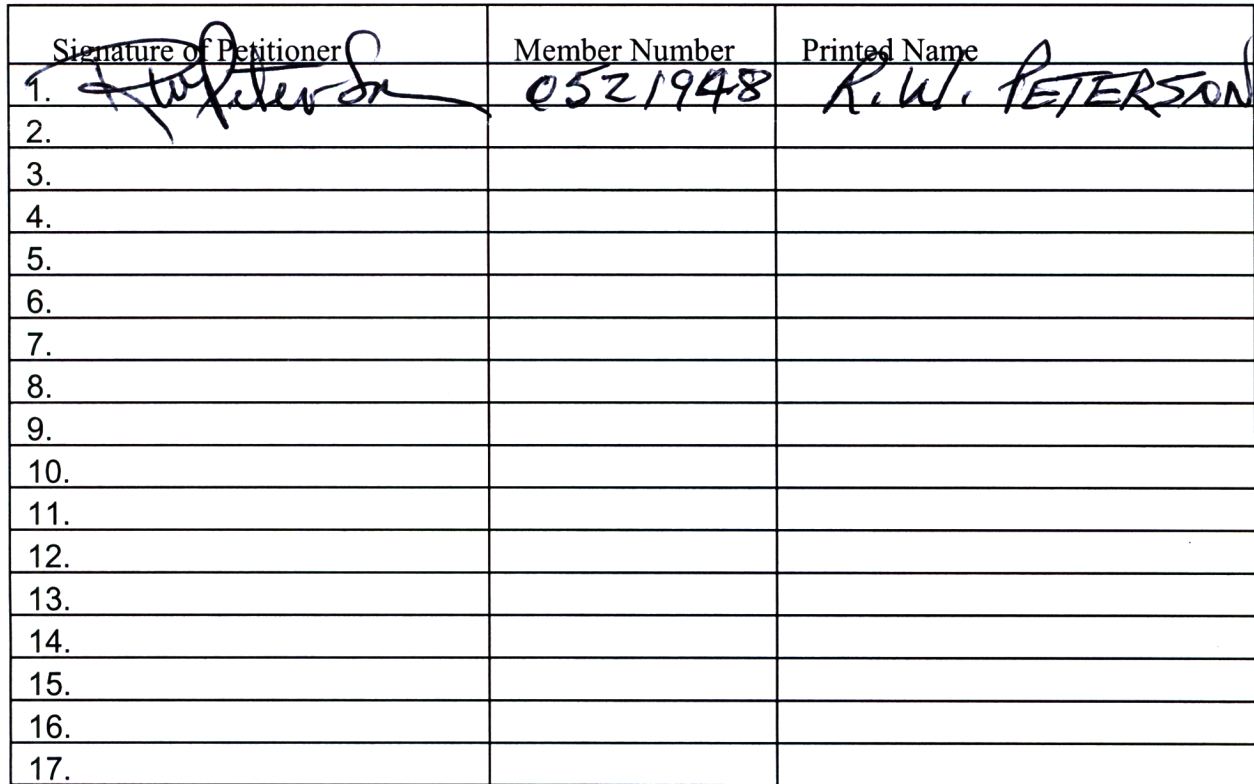 Signature of Petitioner Member Number Printed Name
1. RW Peterson 0521948 R.W. PETERSON
2.
3.
4.
5.
6.
7.
8.
9.
10.
11.
12.
13.
14.
15.
16.
17.